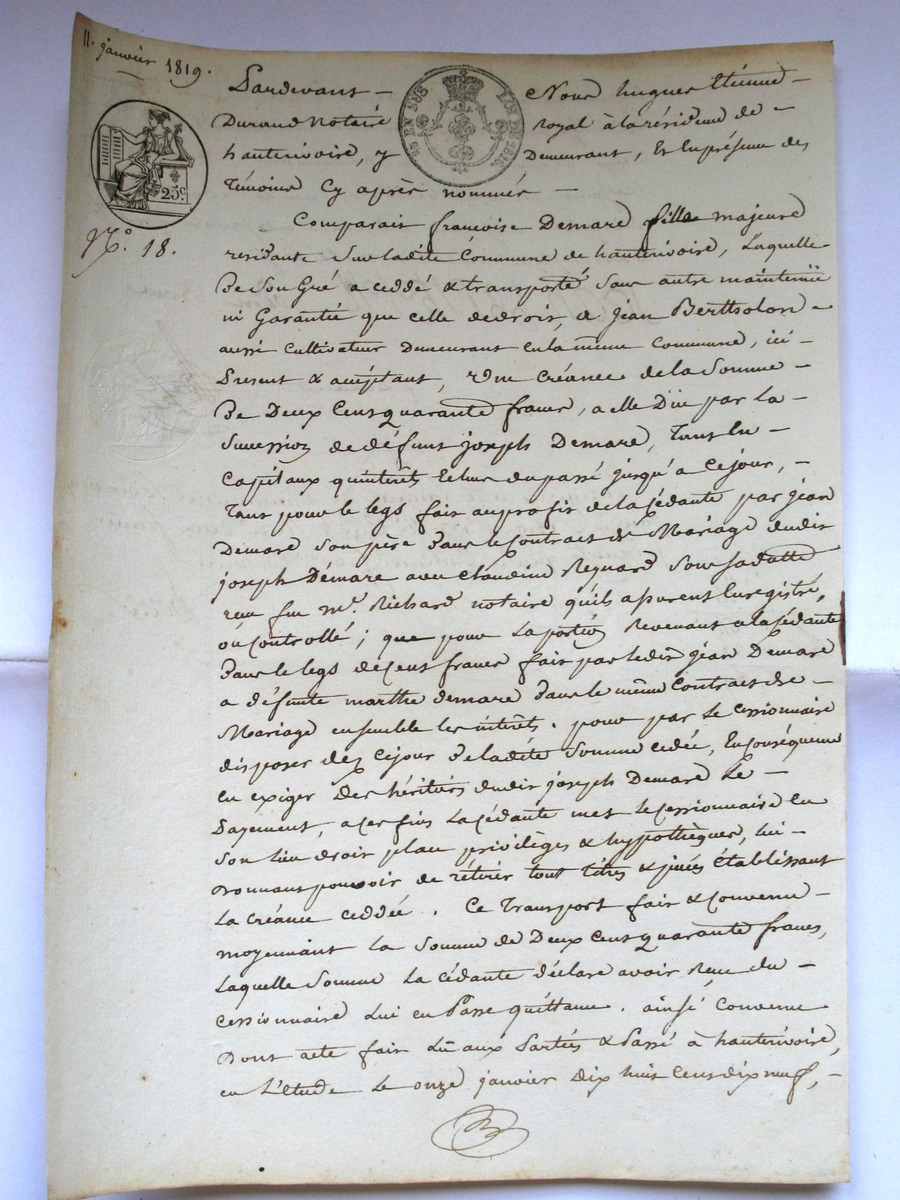 11. janvier 1819.
25 EN SUS LOI DE 1816.
25c.
N.o 18.
Pardevant Nous hugues Etienne
Durand Notaire royal à la résidence de
hauterivoire, y Demeurant, Et En présence des
Témoins Cy après nommés
Comparait françoise Demare fille majeure
residante Sur ladite Commune de hauterivoire, Laquelle
De Son Gré a ceddé & transporté Sans autre maintenüe
ni Garantie que celle de droit, a jean Bertholon
aussi Cultivateur Demeurant en la meme Commune, ici
Present & acceptant, Une Créance de la Somme
De Deux Cens quarante francs, a elle Düe par la
Succession de défunt joseph Demare, Tant En
Capitaux qu'interêts Echus du passé jusqu'a Ce jour,
Tant pour le legs fait au profit de la Cédante par jean
Demare Son père Dans le Contract de Mariage dudit
joseph Démare avec Claudine Reynard Sous Sa datte
recu feu Mr. Richard notaire qu'ils assurent Enregistré,
ou Controllé; que pour La portion Revenant a la Cédante
Dans le legs de Cent francs fait par ledit jean Demare
a défunte marthe demare Dans le même Contract de
Mariage ensemble les interêts. pour par Le Cessionnaire
disposer dez Ce jour De ladite Somme cedée, En Conséquence
en exiger Des héritiers dudit joseph Demare Le
Payement, a ces fins La cédante met le Cessionnaire En
Son lieu droit place privilèges & hypothèques, lui
Donnant pouvoir de rétirer tout titres & pièces établissant
La créance ceddée. Ce Transport fait & Convenu
moyennant La Somme de Deux Cens quarante francs,
Laquelle Somme La Cédante déclare avoir Recu du
Cessionnaire Lui en Passe quittance. ainsi Convenu
Dont acte fait Lû aux Parties & Passé à hauterivoire,
en L'étude Le onze janvier Dix huit Cens dix neuf,